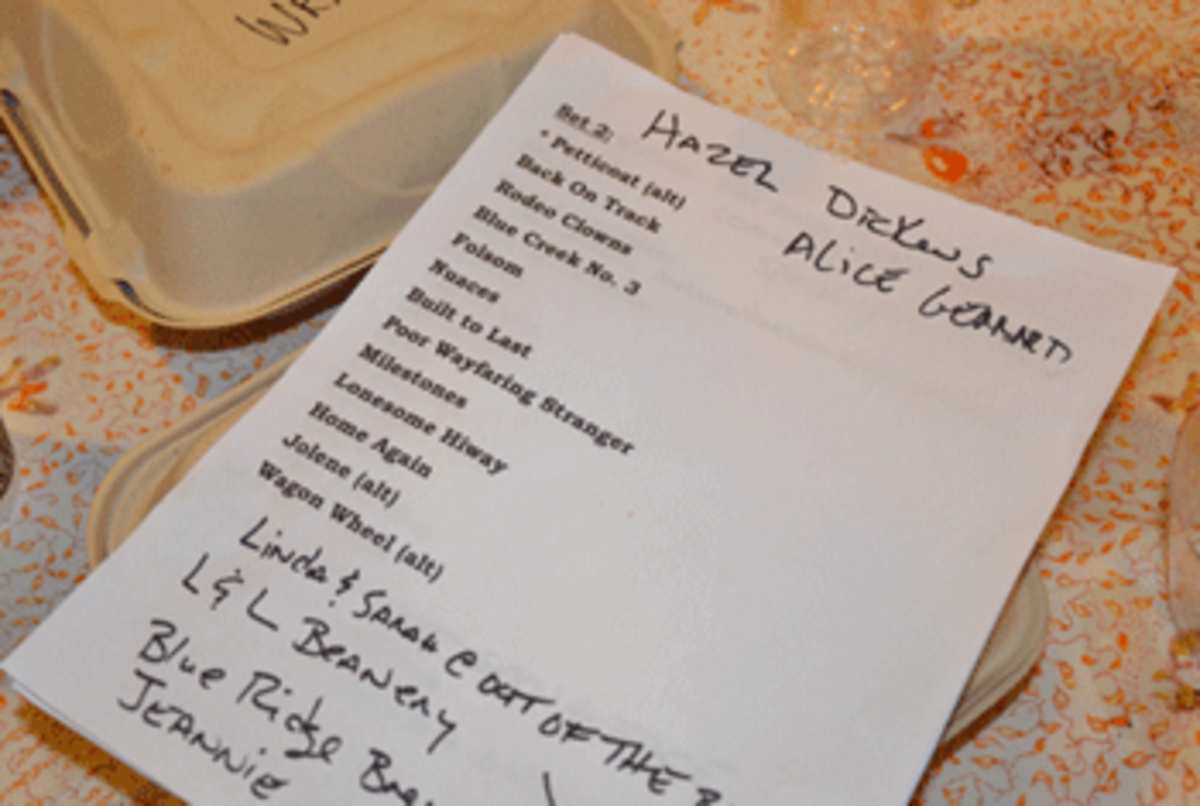 Set 2:
HAZEL DICKENS
ALICE GERARD
• Petticoat (alt)
Back On Track
Rodeo Clowns
Blue Creek No. 3
Folsom
Nuaces
Built to Last
Poor Wayfaring Stranger
Milestones
Lonesome Hiway
Home Again
Jolene (alt)
Wagon Wheel (alt)
Linda & Sarah @ OUT OF THE
L & L BEANERY
Blue Ridge
JEANNIE